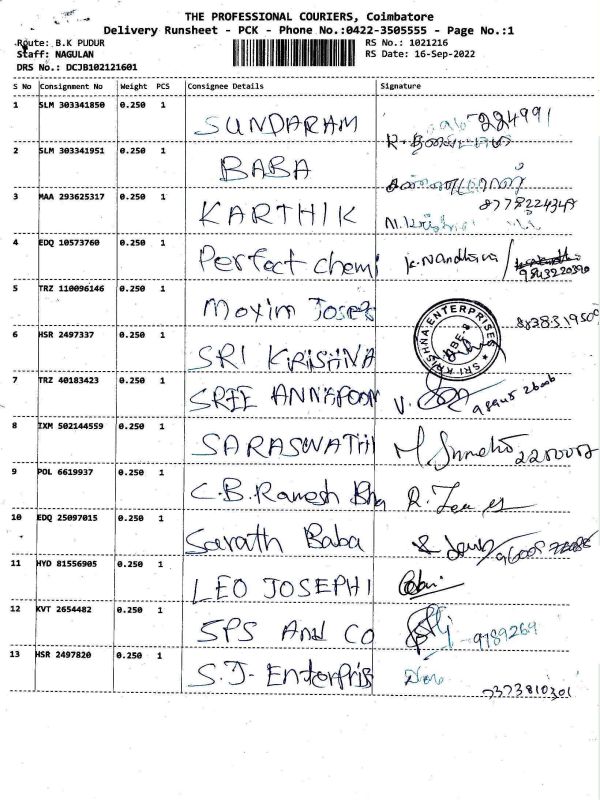 THE PROFESSIONAL COURIERS, Coimbatore
Delivery Runsheet - PCK - Phone No.:0422-3505555 - Page No.:1
Route: B.K PUDUR
RS No.: 1021216
Staff: NAGULAN
RS Date: 16-Sep-2022
DRS No.: DCJB102121601
S No Consignment No Weight PCS Consignee Details Signature
1 SLM 303341850 0.250 1 SUNDARAM 224991
2 SLM 303341951 0.250 1 BABA
3 MAA 293625317 0.250 1 KARTHIK
4 EDQ 10573760 0.250 1 Perfect chemi K. Nandhini
5 TRZ 110096146 0.250 1 Moxim Josep
SRI KRISHNA ENTERPRISES
6 HSR 2497337 0.250 1 SRI KRISHNA
7 TRZ 40183423 0.250 1 SREE ANNAPOORN
8 IXM 502144559 0.250 1 SARASWATHI
9 POL 6619937 0.250 1 C.B. Ramesh Bha
10 EDQ 25097015 0.250 1 Sarath Baba
11 HYD 81556905 0.250 1 LEO JOSEPHI
12 KVT 2654482 0.250 1 SPS And Co 9789269
13 HSR 2497820 0.250 1 S.J- Enterpris 7373810301